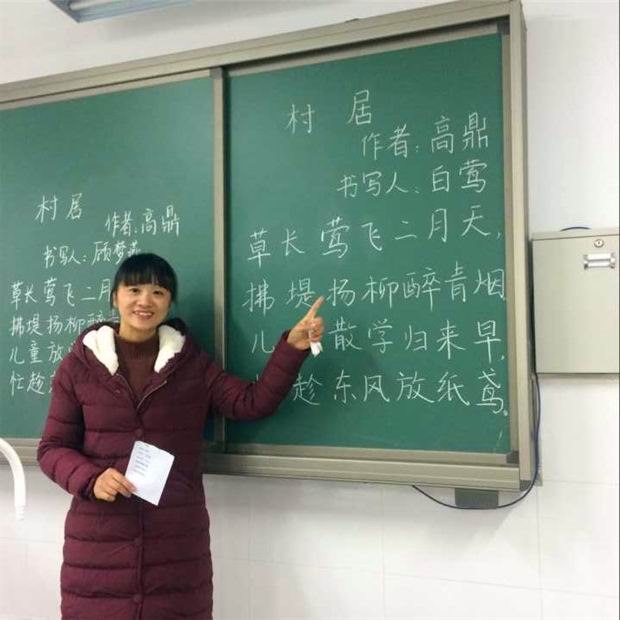 村居
作者:高鼎
书写人:顾梦
草长莺飞二月
拂堤扬柳醉青
儿童放
忙趁
村居
作者:高鼎
书写人:白莺
草长莺飞二月天,
拂堤扬柳醉青烟
儿 散学归来早,
趁东风放纸鸢。